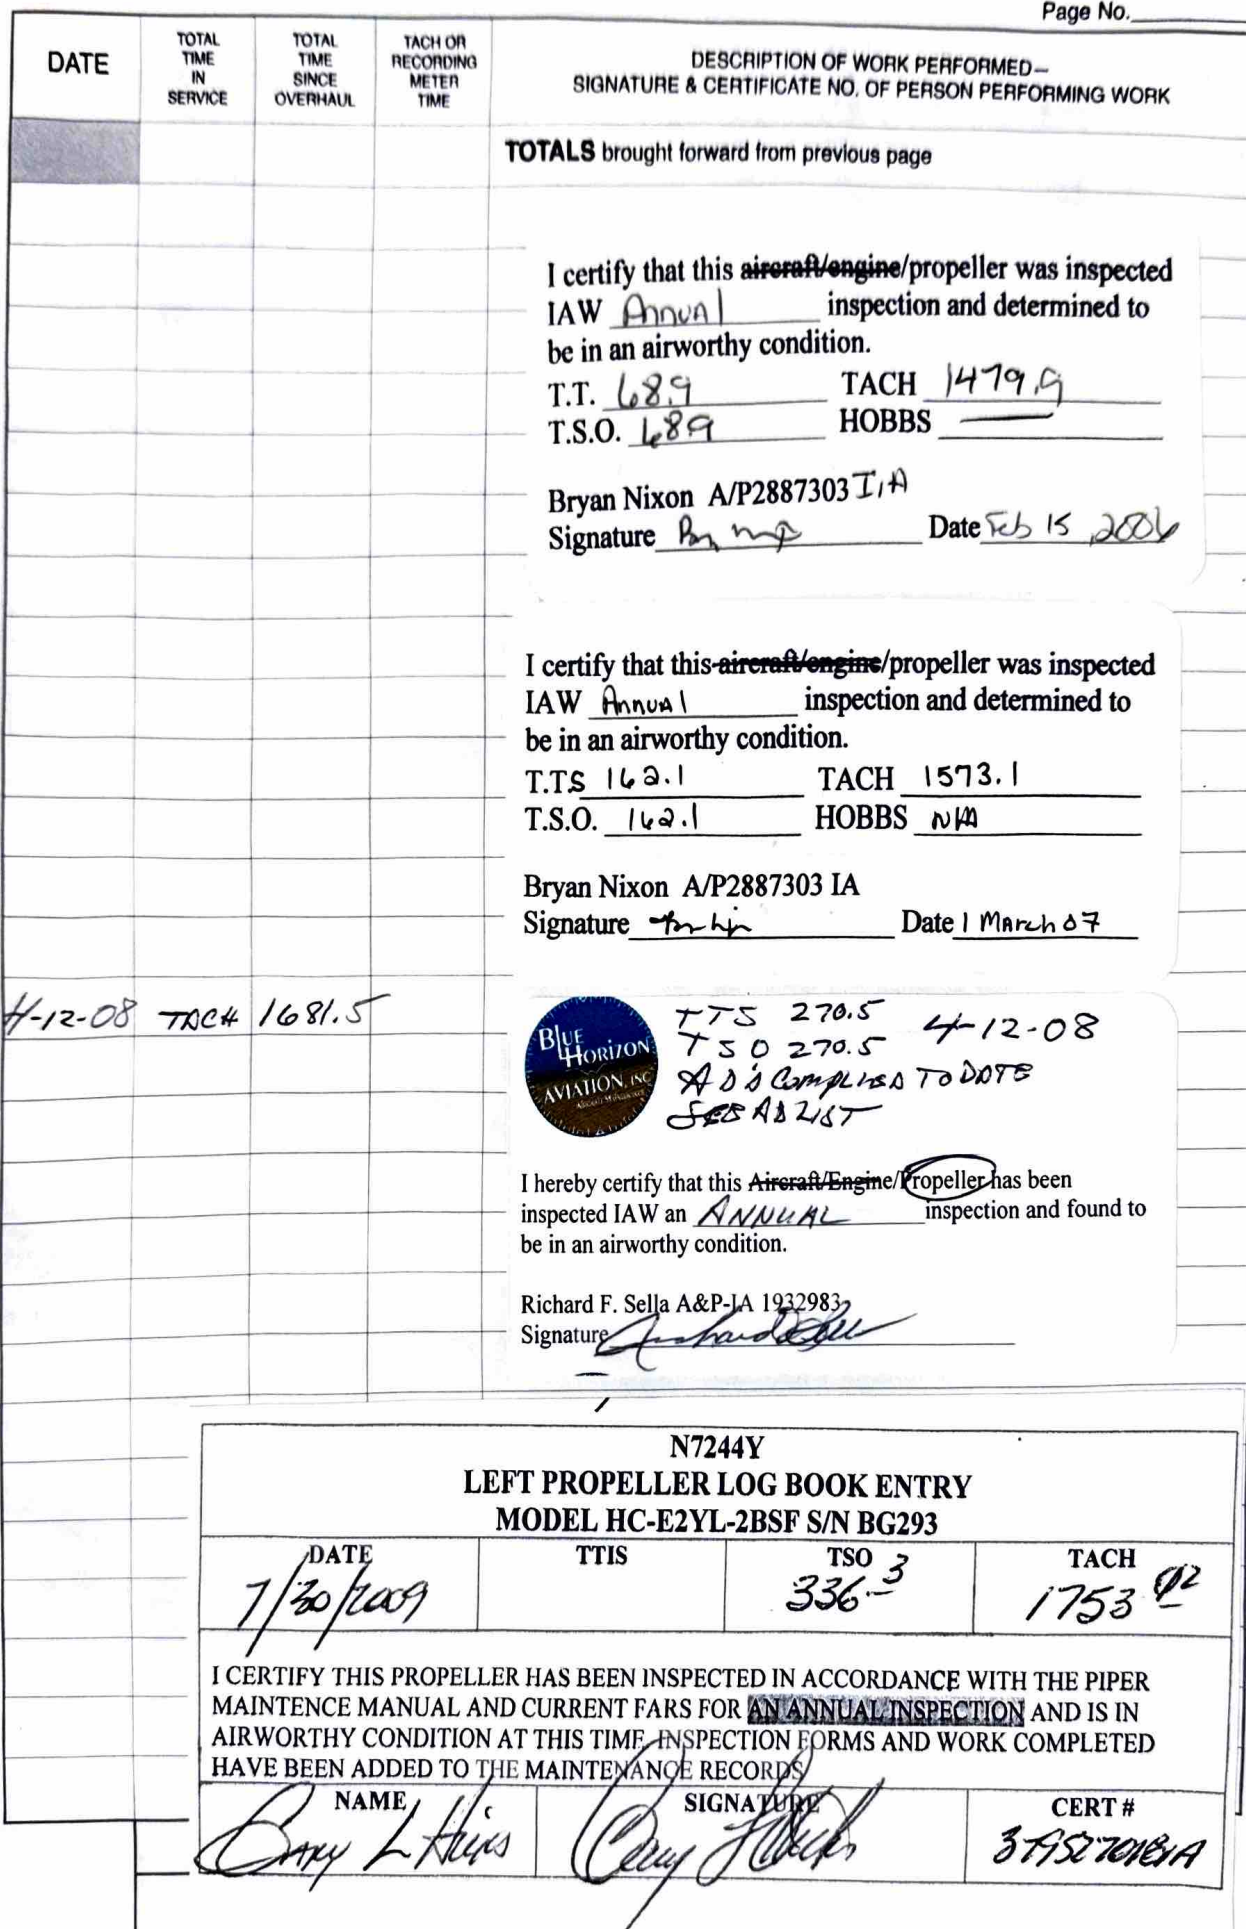 Page No.
DATE
TOTAL TIME IN SERVICE
TOTAL TIME SINCE OVERHAUL
TACH OR RECORDING METER TIME
DESCRIPTION OF WORK PERFORMED—
SIGNATURE & CERTIFICATE NO. OF PERSON PERFORMING WORK
TOTALS brought forward from previous page
I certify that this aircraft/engine/propeller was inspected
IAW Annual inspection and determined to
be in an airworthy condition.
T.T. 68.9 TACH 1479.9
T.S.O. 68.9 HOBBS —
Bryan Nixon A/P2887303 I/A
Signature Date Feb 15, 2006
I certify that this aircraft/engine/propeller was inspected
IAW Annual inspection and determined to
be in an airworthy condition.
T.T.S 162.1 TACH 1573.1
T.S.O. 162.1 HOBBS N/A
Bryan Nixon A/P2887303 IA
Signature Date 1 March 07
4-12-08 TACH 1681.5
BLUE HORIZON AVIATION, INC
TTS 270.5 4-12-08
TSO 270.5
AD's COMPLIED TO DATE
SEE AD LIST
I hereby certify that this Aircraft/Engine/Propeller has been
inspected IAW an ANNUAL inspection and found to
be in an airworthy condition.
Richard F. Sella A&P-IA 1932983
Signature
N7244Y
LEFT PROPELLER LOG BOOK ENTRY
MODEL HC-E2YL-2BSF S/N BG293
DATE TTIS TSO TACH
7/30/2009 336.3 1753
I CERTIFY THIS PROPELLER HAS BEEN INSPECTED IN ACCORDANCE WITH THE PIPER
MAINTENCE MANUAL AND CURRENT FARS FOR AN ANNUAL INSPECTION AND IS IN
AIRWORTHY CONDITION AT THIS TIME. INSPECTION FORMS AND WORK COMPLETED
HAVE BEEN ADDED TO THE MAINTENANCE RECORDS
NAME SIGNATURE CERT #
Gary L